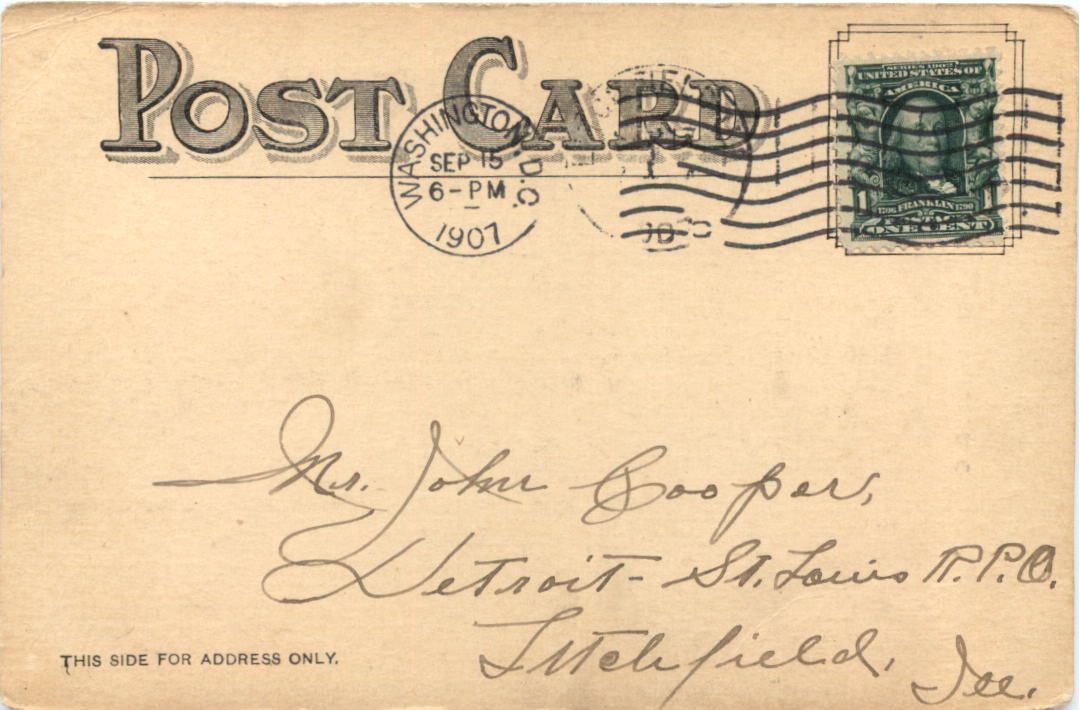 POST CARD
WASHINGTON, D.C.
SEP 15
6-PM
1907
SERIES 1902
UNITED STATES OF
AMERICA
1 1706 FRANKLIN 1790 1
POSTAGE
ONE CENT
Mr. John Cooper,
Detroit - St. Louis R.P.O.
Litchfield,
Ill.
THIS SIDE FOR ADDRESS ONLY.